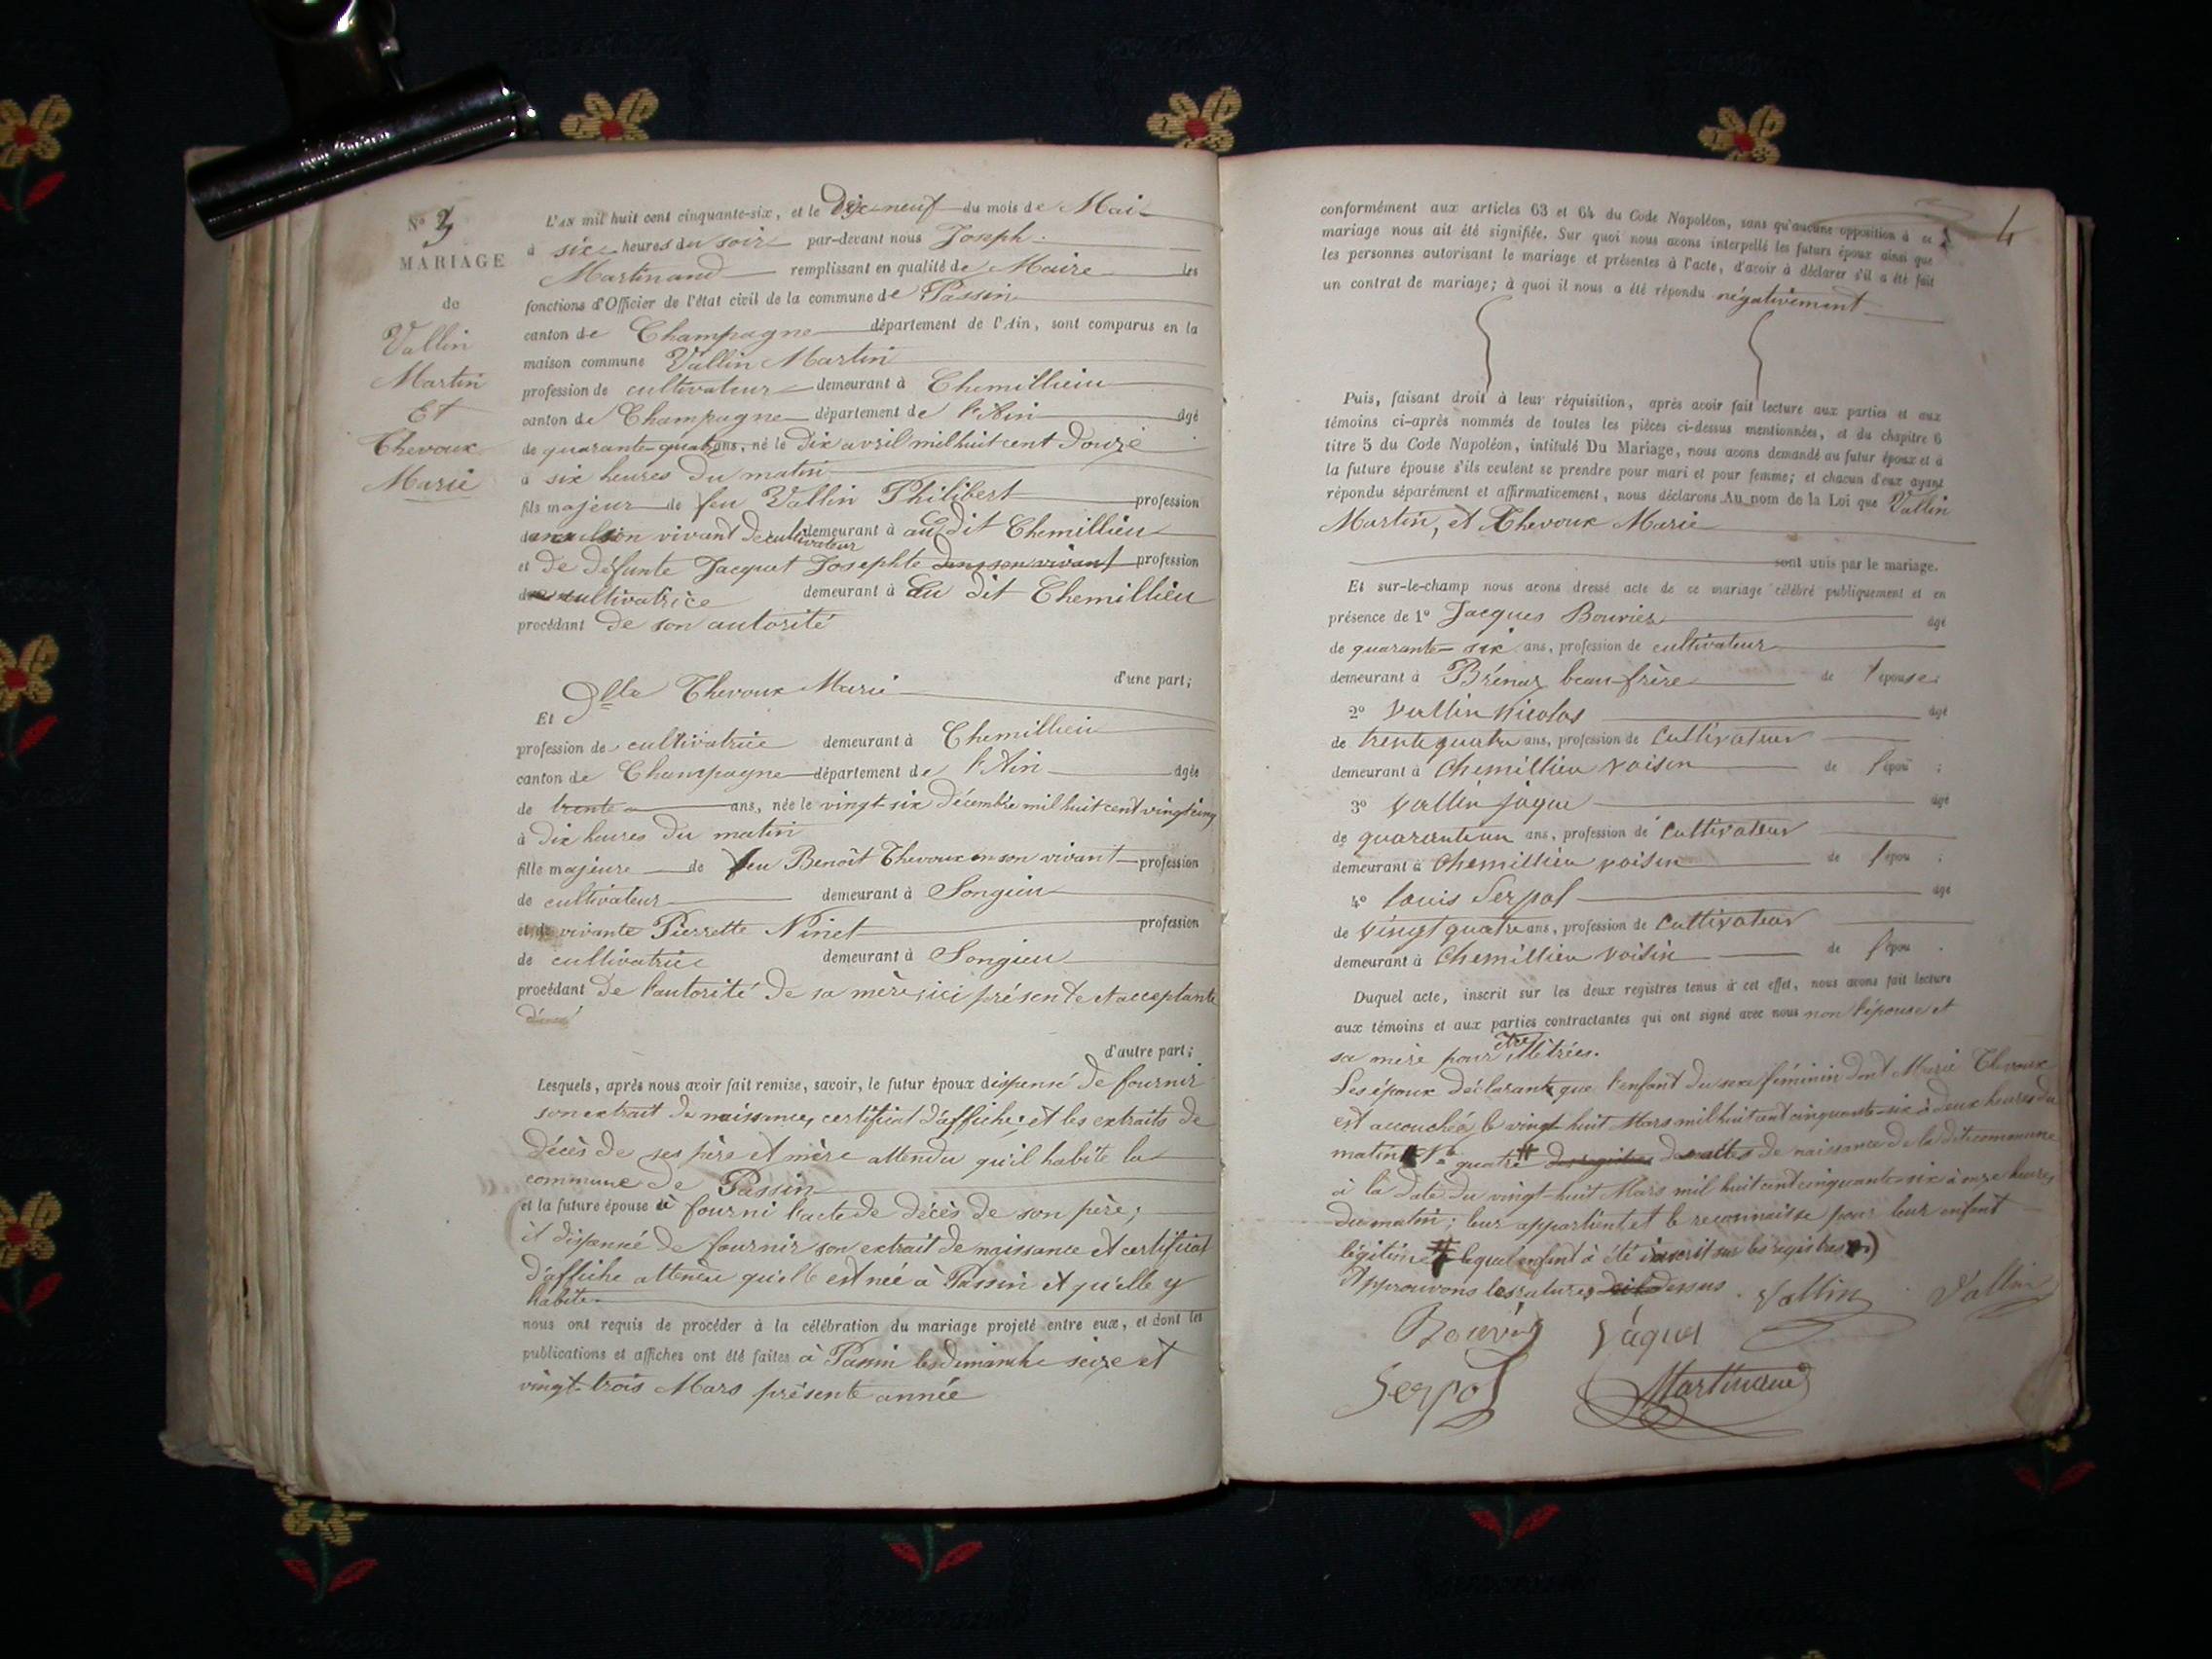 No 3
MARIAGE
de
Vallin
Martin
Et
Thevoux
Marie
L'AN mil huit cent cinquante-six, et le Dix-neuf du mois de Mai
à six heures du soir par-devant nous Joseph
Martinand remplissant en qualité de Maire les
fonctions d'Officier de l'état civil de la commune de Passin
canton de Champagne département de l'Ain, sont comparus en la
maison commune Vallin Martin
profession de cultivateur demeurant à Chemillieu
canton de Champagne département de l'Ain âgé
de quarante-quatre ans, né le Dix avril mil huit cent Douze
à six heures du matin
fils majeur de feu Vallin Philibert profession
son vivant de cultivateur demeurant à au dit Chemillieu
et de défunte Jacquet Josephte dans son vivant profession
de cultivatrice demeurant à Au dit Chemillieu
procédant de son autorité
d'une part;
Et Dlle Thevoux Marie
profession de cultivatrice demeurant à Chemillieu
canton de Champagne département de l'Ain âgée
de trente ans, née le vingt-six décembre mil huit cent vingt cinq
à dix heures du matin
fille majeure de feu Benoît Thevoux en son vivant profession
de cultivateur demeurant à Songieu
et de vivante Pierrette Ninet profession
de cultivatrice demeurant à Songieu
procédant de l'autorité de sa mère, ici présente et acceptante
d'autre part;
Lesquels, après nous avoir fait remise, savoir, le futur époux dispensé de fournir
son extrait de naissance, certificat d'affiche, et les extraits de
décès de ses père et mère attendu qu'il habite la
commune de Passin
et la future épouse à fourni l'acte de décès de son père;
et dispensée de fournir son extrait de naissance et certificat
d'affiche attendu qu'elle est née à Passin et qu'elle y
habite
nous ont requis de procéder à la célébration du mariage projeté entre eux, et dont les
publications et affiches ont été faites à Passin les dimanche seize et
vingt-trois Mars présente année
4
conformément aux articles 63 et 64 du Code Napoléon, sans qu'aucune opposition à ce
mariage nous ait été signifiée. Sur quoi nous avons interpellé les futurs époux ainsi que
les personnes autorisant le mariage et présentes à l'acte, d'avoir à déclarer s'il a été fait
un contrat de mariage; à quoi il nous a été répondu négativement
Puis, faisant droit à leur réquisition, après avoir fait lecture aux parties et aux
témoins ci-après nommés de toutes les pièces ci-dessus mentionnées, et du chapitre 6
titre 5 du Code Napoléon, intitulé Du Mariage, nous avons demandé au futur époux et à
la future épouse s'ils veulent se prendre pour mari et pour femme; et chacun d'eux ayant
répondu séparément et affirmativement, nous déclarons Au nom de la Loi que Vallin
Martin, et Thevoux Marie
sont unis par le mariage.
Et sur-le-champ nous avons dressé acte de ce mariage célébré publiquement et en
présence de 1° Jacques Bouvier âgé
de quarante-six ans, profession de cultivateur
demeurant à Brénaz beau-frère de l'épouse;
2° Vallin Nicolas âgé
de trente quatre ans, profession de Cultivateur
demeurant à Chemillieu voisin de l'épou ;
3° Vallin jaque âgé
de quarante un ans, profession de Cultivateur
demeurant à Chemillieu voisin de l'épou ;
4° Louis Serpol âgé
de vingt quatre ans, profession de Cultivateur
demeurant à Chemillieu voisin de l'épou .
Duquel acte, inscrit sur les deux registres tenus à cet effet, nous avons fait lecture
aux témoins et aux parties contractantes qui ont signé avec nous non l'épouse et
sa mère pour être illétrées.
Les époux déclarant que l'enfant du sexe féminin dont Marie Thevoux
est accouchée le vingt-huit Mars mil huit cent cinquante-six à deux heures du
matin N° quatre # des registres des actes de naissance de la dite commune
à la date du vingt-huit Mars mil huit cent cinquante-six à onze heures
du matin; leur appartient et le reconnaisse pour leur enfant
légitime # lequel enfant à été inscrit sur les registres
Approuvons les ratures dessus. Vallin Vallin
Bouvier Jaque
Serpol Martinand